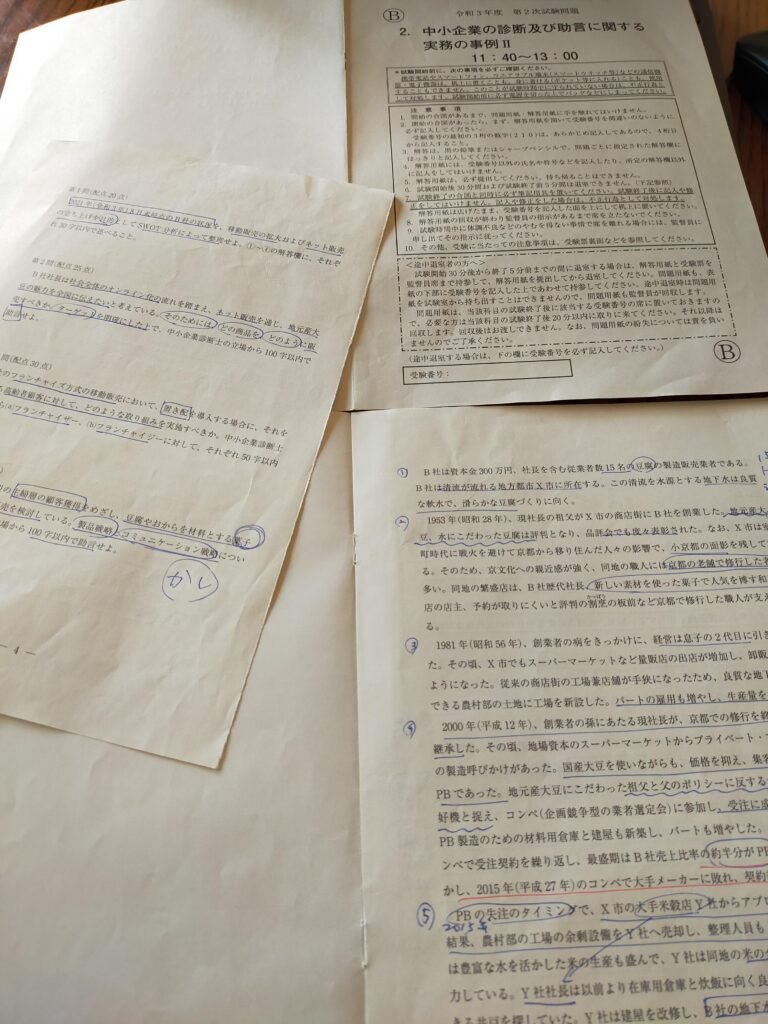 Ⓑ
令和3年度 第2次試験問題
2. 中小企業の診断及び助言に関する
実務の事例Ⅱ
11:40~13:00
*試験開始前に、次の事項を必ずご確認ください。
注意事項
1. 開始の合図があるまで、問題用紙・解答用紙に手を触れてはいけません。
2. 開始の合図があったら、まず、解答用紙を開いて受験番号を間違いのないように
必ず記入してください。
受験番号の最初の3桁の数字(210)は、あらかじめ記入してあるので、4桁目
から記入すること。
3. 解答は、黒の鉛筆またはシャープペンシルで、問題ごとに指定された解答欄に
はっきりと記入してください。
4. 解答用紙には、受験番号以外の氏名や符号などを記入したり、所定の解答欄以外
に記入をしてはいけません。
5. 解答用紙は、必ず提出してください。持ち帰ることはできません。
6. 試験開始後30分間および試験終了前5分間は退室できません。(下記参照)
7. 試験終了の合図と同時に必ず筆記用具を置いてください。試験終了後に記入や修
正をしてはいけません。記入や修正をした場合は、不正行為として対処します。
解答用紙は広げたまま、受験番号を記入した面を上にして机上に置いてください。
8. 解答用紙の回収が終わり監督員の指示があるまで席を立たないでください。
9. 試験時間中に体調不良などのやむを得ない事情で席を離れる場合には、監督員に
申し出てその指示に従ってください。
10. その他、受験に当たっての注意事項は、受験票裏面などを参照してください。
<途中退室者の方へ>
試験開始30分後から終了5分前までの間に退室する場合は、解答用紙と受験票を
監督員席まで持参し、解答用紙を提出してから退室してください。問題用紙も、表
紙の下部に受験番号を記入した上であわせて持参してください。途中退室時は問題用
紙を試験室から持ち出すことはできませんので、問題用紙も監督員が回収します。
問題用紙は、当該科目の試験終了後に該当する受験番号の席に置いておきますの
で、必要な方は当該科目の試験終了後20分以内に取りに来てください。それ以降は
回収します。回収後はお渡しできません。なお、問題用紙の紛失については責を負い
ませんのでご了承ください。
(途中退室する場合は、下の欄に受験番号を必ず記入してください。)
受験番号:
Ⓑ
第1問(配点20点)
2021年(令和3年)8月末時点のB社の状況を、移動販売の拡大およびネット販売
の立ち上げを目的としてSWOT分析によって整理せよ。①~④の解答欄に、それぞ
れ30字以内で述べること。
第2問(配点25点)
B社社長は社会全体のオンライン化の流れを踏まえ、ネット販売を通じ、地元産大
豆の魅力を全国に伝えたいと考えている。そのためには、どの商品を、どのように販
売すべきか。ターゲットを明確にした上で、中小企業診断士の立場から100字以内で
助言せよ。
問(配点30点)
のフランチャイズ方式の移動販売において、置き配を導入する場合に、それを
高齢者顧客に対して、どのような取り組みを実施すべきか。中小企業診断士
ら(a)フランチャイザー、(b)フランチャイジーに対して、それぞれ50字以内
主婦層の顧客獲得をめざし、豆腐やおからを材料とする菓子
売を検討している。製品戦略とコミュニケーション戦略につい
場から100字以内で助言せよ。
かし
— 4 —
① B社は資本金300万円、社長を含む従業者数15名の豆腐の製造販売業者である。
B社は清流が流れる地方都市X市に所在する。この清流を水源とする地下水は良質
な軟水で、滑らかな豆腐づくりに向く。
② 1953年(昭和28年)、現社長の祖父がX市の商店街にB社を創業した。地元産大
豆、水にこだわった豆腐は評判となり、品評会でも度々表彰された。なお、X市は室
町時代に戦火を避けて京都から移り住んだ人々の影響で、小京都の面影を残して
る。そのため、京文化への親近感が強く、同地の職人には京都の老舗で修行した者
多い。同地の繁盛店は、B社歴代社長、新しい素材を使った菓子で人気を博す和
店の店主、予約が取りにくいと評判の割烹の板前など京都で修行した職人が支え
かっぽう
る。
③ 1981年(昭和56年)、創業者の病をきっかけに、経営は息子の2代目に引き
た。その頃、X市でもスーパーマーケットなど量販店の出店が増加し、卸販
ようになった。従来の商店街の工場兼店舗が手狭になったため、良質な地下
できる農村部の土地に工場を新設した。パートの雇用も増やし、生産量を
④ 2000年(平成12年)、創業者の孫にあたる現社長が、京都での修行を終
継承した。その頃、地場資本のスーパーマーケットからプライベート・
の製造呼びかけがあった。国産大豆を使いながらも、価格を抑え、集客
PBであった。地元産大豆にこだわった祖父と父のポリシーに反する
好機と捉え、コンペ(企画競争型の業者選定会)に参加し、受注に成
PB製造のための材料用倉庫と建屋も新築し、パートも増やした。
ンペで受注契約を繰り返し、最盛期はB社売上比率の約半分がPB
かし、2015年(平成27年)のコンペで大手メーカーに敗れ、契約
⑤ PBの失注のタイミングで、X市の大手米穀店Y社からアプロ
2015年
結果、農村部の工場の余剰設備をY社へ売却し、整理人員も
は豊富な水を活かした米の生産も盛んで、Y社は同地の米の
力している。Y社社長は以前より在庫用倉庫と炊飯に向く良
きる井戸を探していた。Y社は建屋を改修し、B社の地下水